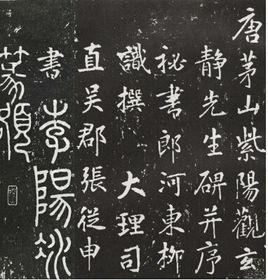 唐茅山紫陽觀玄
靜先生碑并序
秘書郎河東柳
識撰 大理司
直吳郡張從申
書 李陽冰
篆額